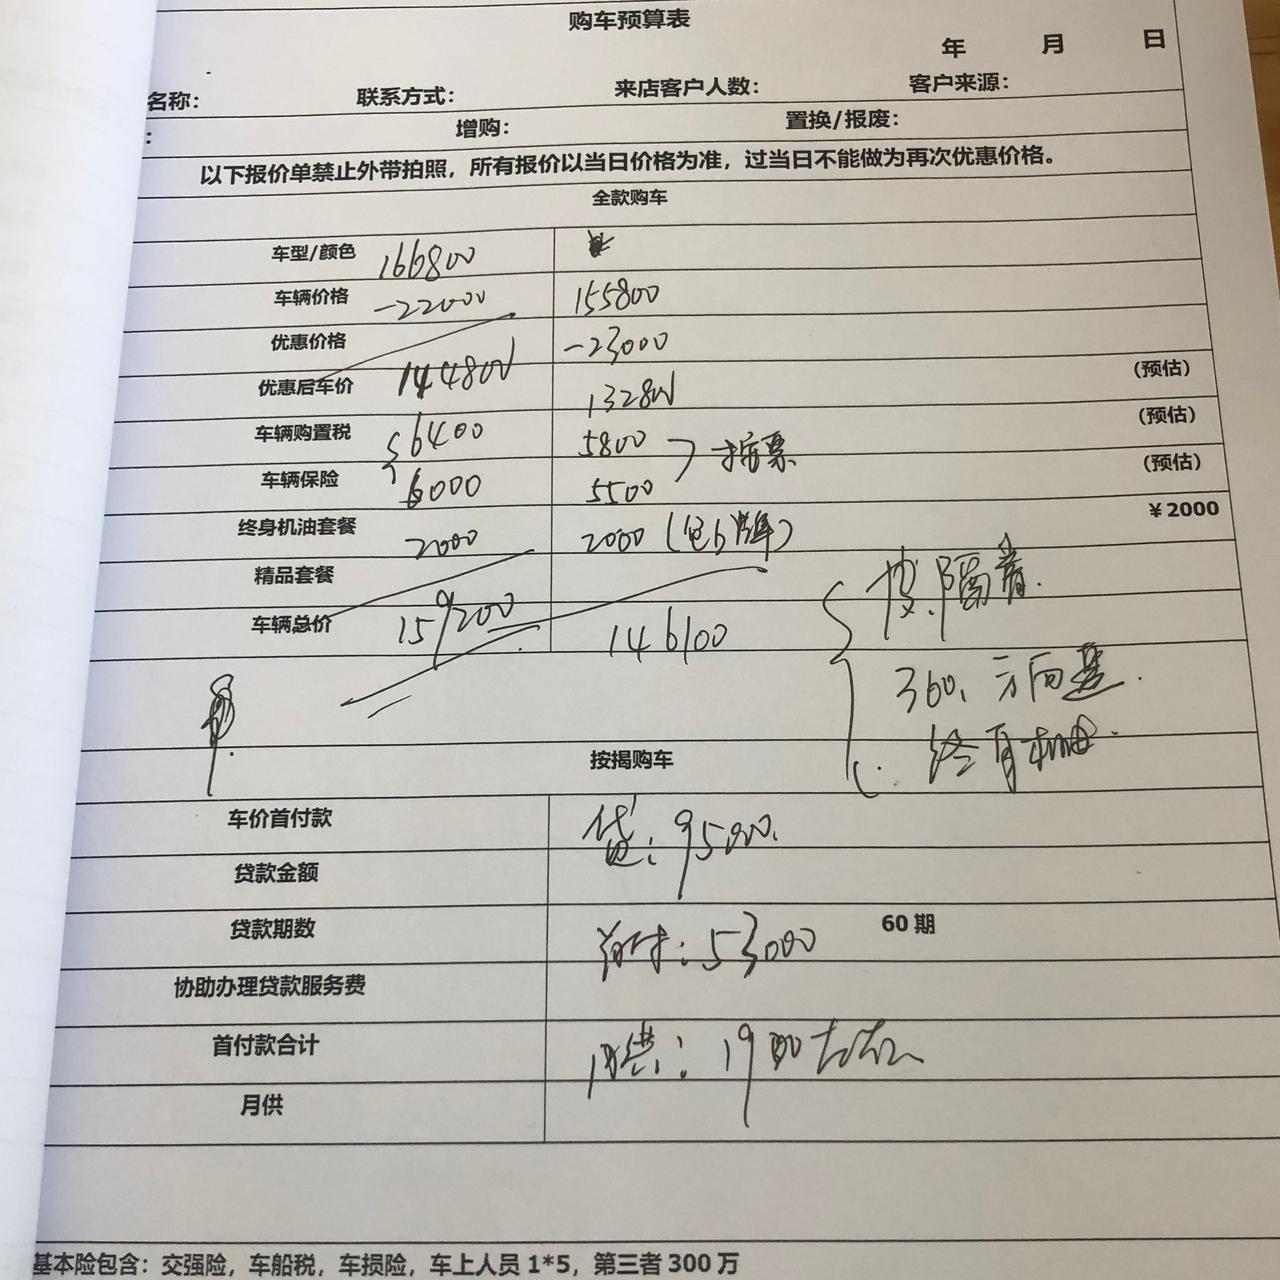 购车预算表
年 月 日
名称： 联系方式： 来店客户人数： 客户来源：
： 增购： 置换/报废：
以下报价单禁止外带拍照，所有报价以当日价格为准，过当日不能做为再次优惠价格。
全款购车
车型/颜色 166800
车辆价格 -22000 155800
优惠价格 -23000
优惠后车价 144800 132800 (预估)
车辆购置税 6400 5800 (预估)
车辆保险 6000 5500 票 (预估)
终身机油套餐 2000 2000 (包 牌) ¥2000
精品套餐
车辆总价 159200 146100
隔音.
360、方向盘.
终身机油.
按揭购车
车价首付款 贷：95000.
贷款金额
贷款期数 首付：53000 60 期
协助办理贷款服务费
首付款合计 月供：1900左右
月供
基本险包含：交强险，车船税，车损险，车上人员 1*5，第三者 300 万